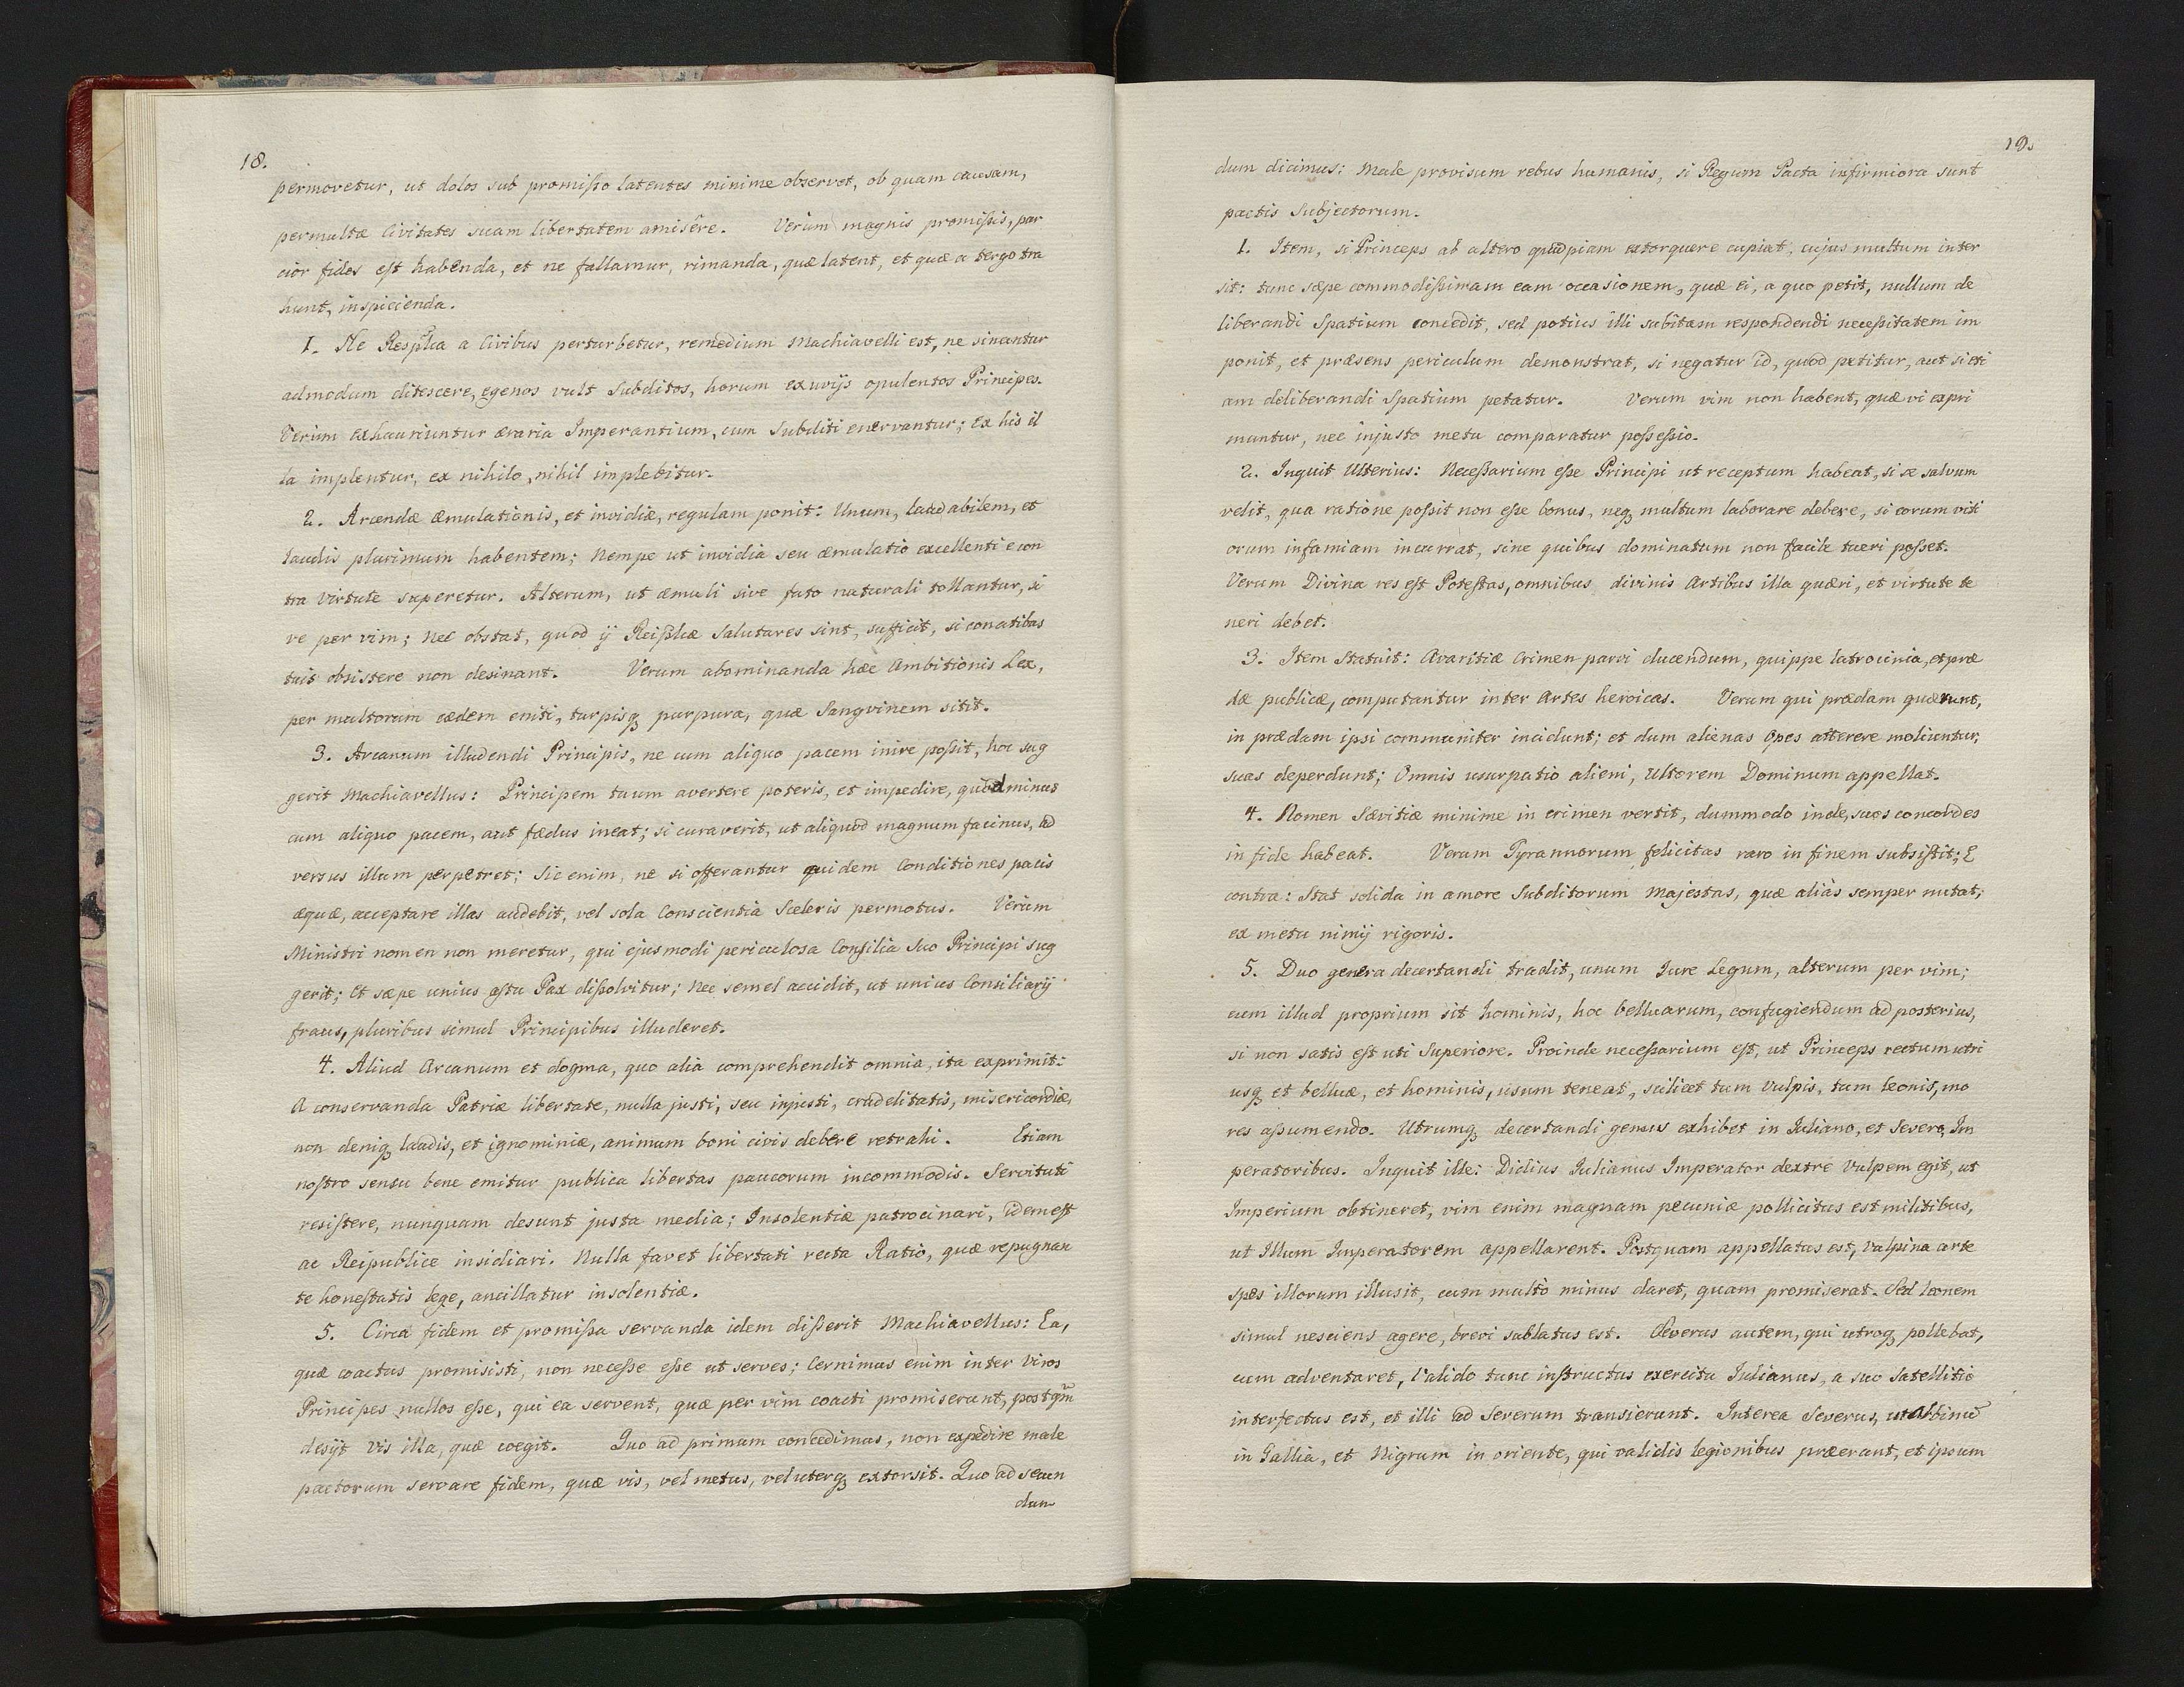 18.
permovetur, ut dolos sub promisso latentes minime observet, ob quam causam,
permultæ Civitates suam libertatem amisêre. Verùm magnis promissis, par
cior fides est habenda, et ne fallamur, rimanda, quæ latent, et quæ a tergo tra
hunt, inspicienda.
1. Ne Resplca a Civibus perturbetur, remedium Machiavelli est, ne sinantur
admodum ditescere, egenos vult Subditos, horum exuvijs opulentos Principes.
Verùm exhauriuntur æraria Imperantium, cum Subditi enervantur; ex his il
la implentur, ex nihilo, nihil implebitur.
2. Arcendæ æmulationis, et invidiæ, regulam ponit: Unum, laudabilem, et
laudis plurimum habentem; Nempe ut invidia seu æmulatio excellenti e con
tra virtute superetur. Alterum, ut æmuli sive fato naturali tollantur, si
ve per vim; Nec obstat, quod ij Reiplcæ Salutares sint, sufficit, si conatibus
tuis obsistere non desinant. Verum abominanda hæc Ambitionis Lex,
per multorum cædem eniti, turpisq purpura, quæ Sangvinem sitit.
3. Arcanum illudendi Principis, ne cum aliquo pacem inire possit, hoc sug
gerit Machiavellus: Principem tuum avertere poteris, et impedire, quòd minus
cum aliquo pacem, aut fædus ineat; si curaverit, ut aliquod magnum facinus, ad
versus illum perpetret; Sic enim, ne si offerantur quidem Conditiones pacis
æquæ, acceptare illas audebit, vel sola Conscientia Sceleris permotus. Verùm
Ministri nomen non meretur, qui ejusmodi periculosa Consilia Suo Principi sug
gerit; Et sæpe unius astu Pax dissolvitur; Nec semel accidit, ut unius Consiliarij
fraus, pluribus simul Principibus illuderet.
4. Aliud Arcanum et dogma, quo alia comprehendit omnia, ita exprimit:
A conservanda Patriæ libertate, nulla justi, seu injusti, crudelitatis, misericordiæ,
non deniq laudis, et ignominiæ, animum boni civis debere retrahi. Etiam
nostro sensu bene emitur publica libertas paucorum incommodis. Servituti
resistere, nunquam desunt justa media; Insolentiæ patrocinari, idem est
ac Reipublice insidiari. Nulla favet libertati recta Ratio, quæ repugnan
te honestatis lege, ancillatur insolentiæ.
5. Circa fidem et promissa servanda idem disserit Machiavellus: Ea,
quæ coactus promisisti, non necesse esse ut serves; Cernimus enim inter Viros
Principes nullos esse, qui ea servent, quæ per vim coacti promiserunt, postqm̃
desijt vis illa, quæ coegit. Quo ad primum concedimus, non expedire male
pactorum servare fidem, quæ vis, vel metus, vel uterq extorsit. Quo ad secun
dum
19.
dum dicimus: Male provisum rebus humanis, si Regum Pacta infirmiora sunt
pactis Subjectorum.
1. Item, si Princeps ab altero quidpiam extorquere cupiat, cujus multum inter
sit: tunc sæpe commodissimam eam occasionem, quæ ei, a quo petit, nullum de
liberandi Spatium concedit, sed potius illi subitam respondendi necessitatem im
ponit, et præsens periculum demonstrat, si negatur id, quod petitur, aut si eti
am deliberandi Spatium petatur. Verum vim non habent, quæ vi expri
muntur, nec injusto metu comparatur possessio.
2. Inquit Ulterius: Necessarium esse Principi ut receptum habeat, si se salvum
velit, qua ratione possit non esse bonus, neq multum laborare debere, si eorum viti
orum infamiam incurrat, sine quibus dominatum non facile tueri posset.
Verum Divina res est Potestas, omnibus divinis Artibus illa quæri, et virtute te
neri debet.
3. Item Statuit: Avaritiæ Crimen parvi ducendum, quippe latrocinia, et præ
dæ publicæ, computantur inter Artes heroicas. Verum qui prædam quærunt,
in prædam ipsi communiter incidunt; et dum alienas Opes atterere moliuntur,
suas deperdunt; Omnis usurpatio alieni, Ultorem Dominum appellat.
4. Nomen Sævitiæ minime in crimen vertit, dummodo inde, suos concordes
in fide habeat. Verum Tyrannorum felicitas raro in finem subsistit; E
contra: Stat solida in amore Subditorum Majestas, quæ aliàs semper nutat,
ex metu nimij rigoris.
5. Duo genera decertandi tradit, unum Jure Legum, alterum per vim;
cum illud proprium sit hominis, hoc belluarum, confugiendum ad posterius,
si non satis est uti Superiore. Proinde necessarium est, ut Princeps rectum utri
usq et belluæ, et hominis, usum teneat, scilicet tum Vulpis, tum Leonis, mo
res assumendo. Utrumq decertandi genus exhibet in Juliano, et Severo, Im
peratoribus. Inquit ille: Didius Julianus Imperator dextre Vulpem egit, ut
Imperium obtineret, vim enim magnam pecuniæ pollicitus est militibus,
ut Illum Imperatorem appellarent. Postquam appellatus est, Vulpina arte
spes illorum illusit, cum multò minus daret, quam promiserat. Sed Leonem
simul nesciens agere, brevi sublatus est. Severus autem, qui utroq pollebat,
cum adventaret, Valido tunc instructus exercitu Julianus, a suo Satellitio
interfectus est, et illi ad Severum transierunt. Interea Severus, ut Albinũ
in Gallia, et Nigrum in oriente, qui validis legionibus præerant, et ipsum